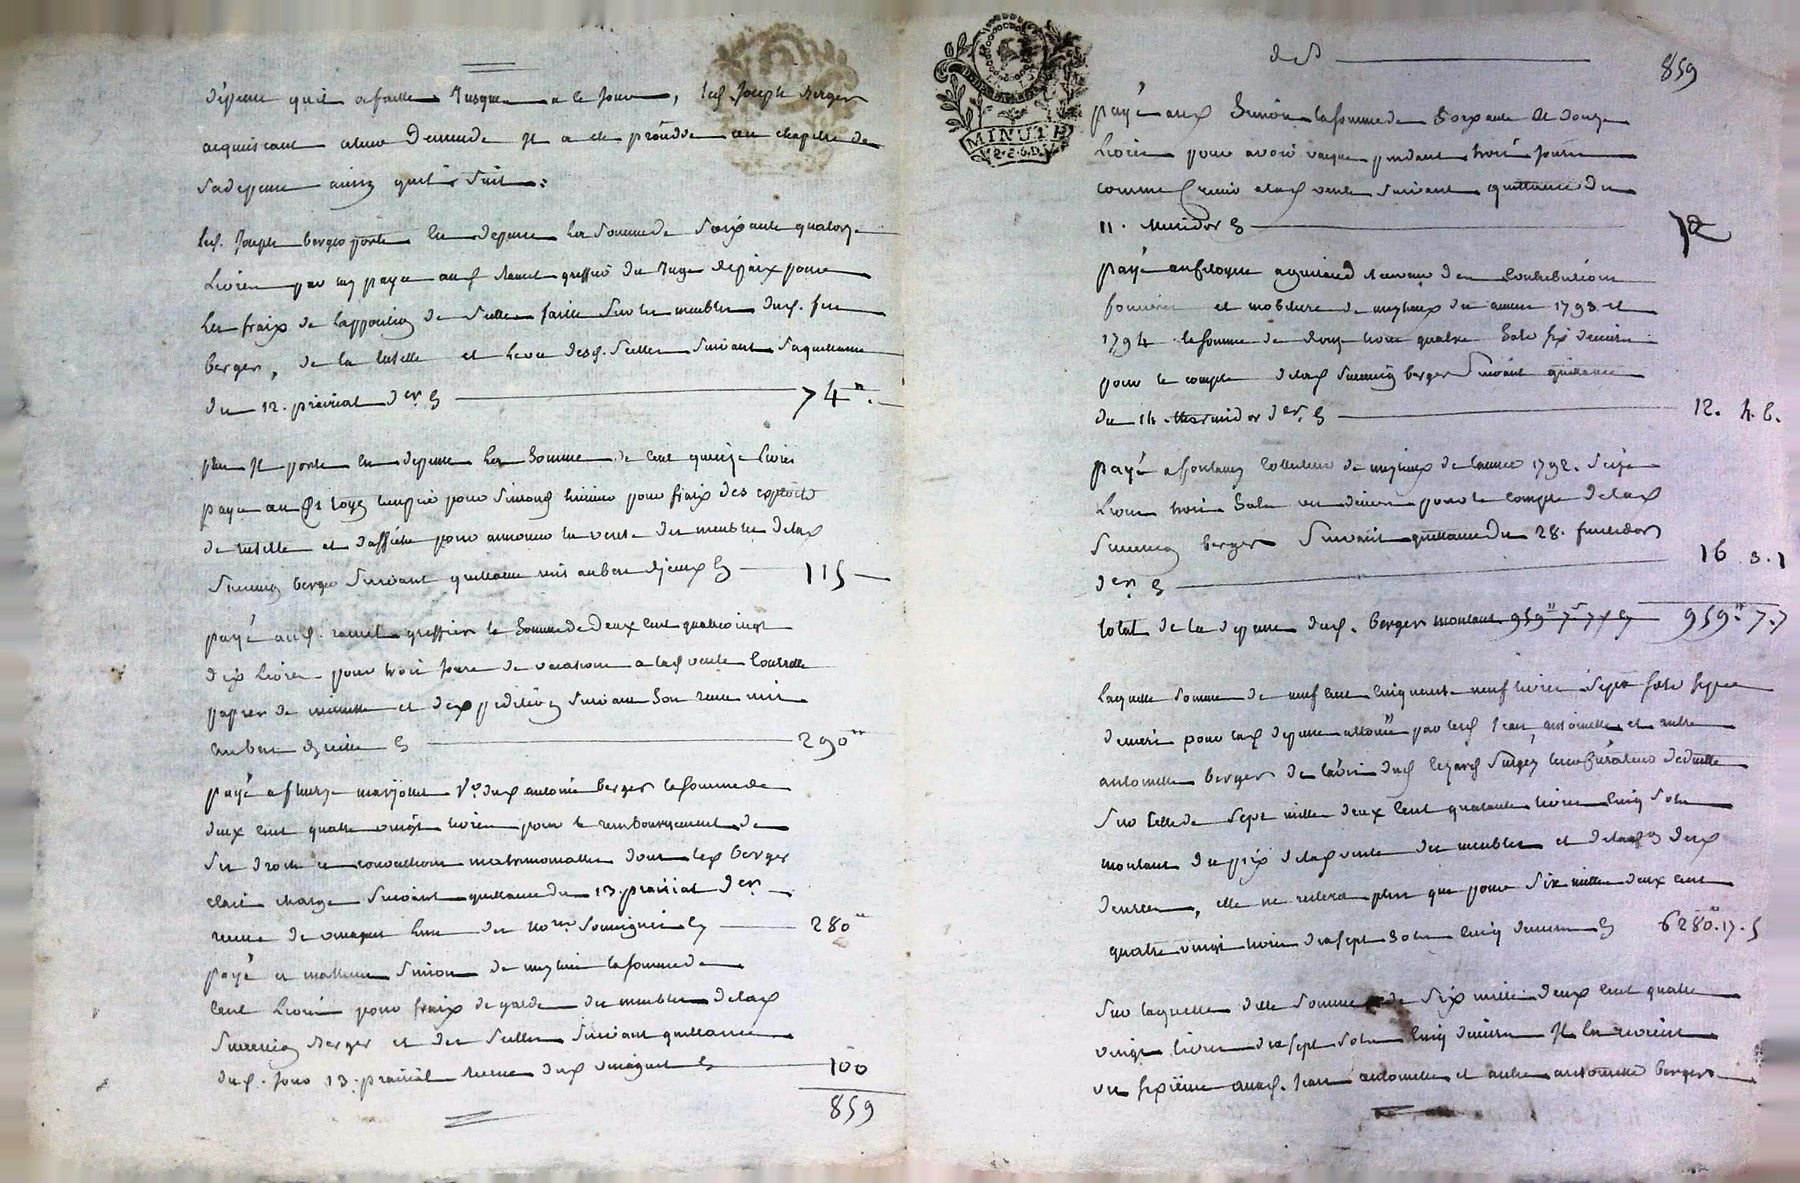 dépense quil a faitte Jusque a ce Jour, led Joseph Berger
acquiescant a leur demande Il a été procédé au chapitre de
sa depense ainsy quil suit:
led. Joseph berger porte en depense la somme de soixante quatorze
Livres par luy payé aud Ramel greffier du Juge de paix pour
les fraix de l'appoSition de scellés faitte sur les meubles dud. feu
berger, de la tutelle et levée desd. scellés suivant sa quittance
du 12. prairial der. 74#.
plus Il porte en depense la somme de cent quinze livres
payé au
de tutelle et d'affiche pour annoncer la vente des meubles de lad
Succession berger suivant quittance mis au bas dyceux 115
payé aud. ramel greffier la somme de deux cent quatre vingt
dix Livres pour trois Jours de vacation a lad vente Controlle
papier de minutte et d'expedition suivant son receu mis
au bas dycelle 290#
payé a marjollet Ve. dud antoine berger la somme de
deux cent quatre vingt livres pour le remboursement de
ses droits et conventions matrimonialles dont led berger
etait chargé suivant quittance du 13. prairial der
receue de l'un des nores. soussignés 280#
payé a mathieu Simon de la somme de
cent Livres pour fraix de garde des meubles de lad
Succession Berger et des scellés suivant quittance
dud. Jour 13. prairial receue dud 100
859
MINUTE
de S 859
payé aud Simon la somme de soixante et douze
Livres pour avoir vaqué pendant trois Jours
comme Crieur a lad vente suivant quittance du
11. Messidor 72
payé au Citoyen receveur des Contributions
foncière et mobiliere de des années 1793. et
1794. la somme de douze livres quatre sols six deniers
pour le compte de lad Succession berger suivant quittance
du 14. thermidor der. 12. 4. 6.
payé a Collecteur de de l'année 1792. seize
Livres trois sols un denier pour le compte de lad
Succession berger suivant quittance du 28. fructidor
der. 16. 3. 1
total de la depense dud. berger montant 959# 7s 7d 959# 7. 7
Laquelle somme de neuf cent cinquante neuf livres sept sols sept
deniers pour lad depense allouée par lesd Jean, antoinette et autre
antoinette berger de l'avis dud
sur celle de sept mille deux cent quarante livres cinq sols
montant du prix de lad vente des meubles et desd
denrées, elle ne restera plus que pour six mille deux cent
quatre vingt livres dix sept sols cinq deniers 6280#. 17. 5
sur laquelle ditte somme de six mille deux cent quatre
vingt livres dix sept sols cinq deniers Il en revient
un sixième auxd. Jean antoinette et autre antoinette berger